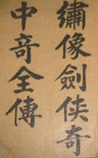 繡像劍俠奇
中奇全傳